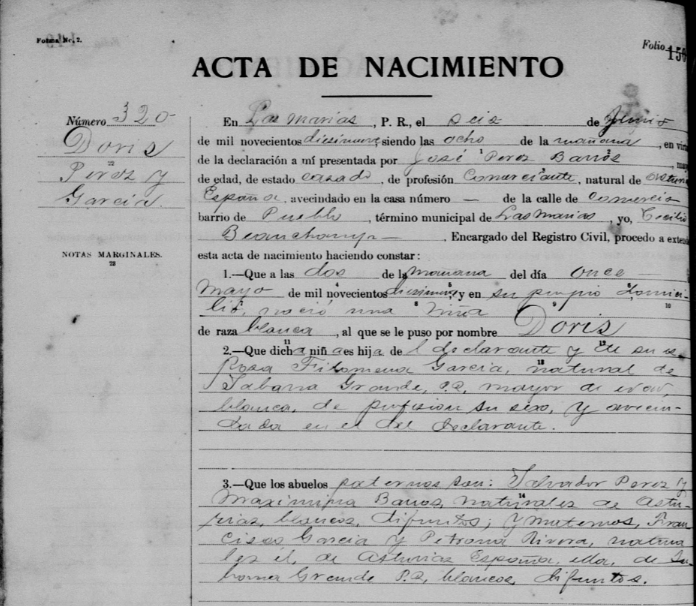 Forma Nr. 2.
Folio 15
ACTA DE NACIMIENTO
Número 320
Doris
Perez y
Garcia
NOTAS MARGINALES.
En Las Marias, P. R., el seis de Junio
de mil novecientos diecinueve siendo las ocho de la mañana, en
de la declaración a mí presentada por José Perez Banos,
de edad, de estado casado, de profesión Comerciante, natural de
España, avecindado en la casa número — de la calle de Comercio
barrio de Pueblo, término municipal de Las Marias, yo, Cecilio
Beauchamp —, Encargado del Registro Civil, procedo a
esta acta de nacimiento haciendo constar:
1.—Que a las dos de la mañana del día once
Mayo de mil novecientos diecinueve y en su propio
nació una niña
de raza blanca, al que se le puso por nombre Doris
2.—Que dicha niña es hija del declarante y de su
Rosa Filomena Garcia, natural de
Sabana Grande, P.R., mayor de edad,
blanca, de profesion su sexo, y avecin-
dada en el del declarante.
3.—Que los abuelos paternos son: Salvador Perez y
Maximina Banos, naturales de Astu-
rias, blancos, difuntos; y maternos, Fran-
cisco Garcia y Petrona Rivera, natura
les él, de Asturias España, ella, de Sa-
bana Grande P.R., blancos, difuntos.